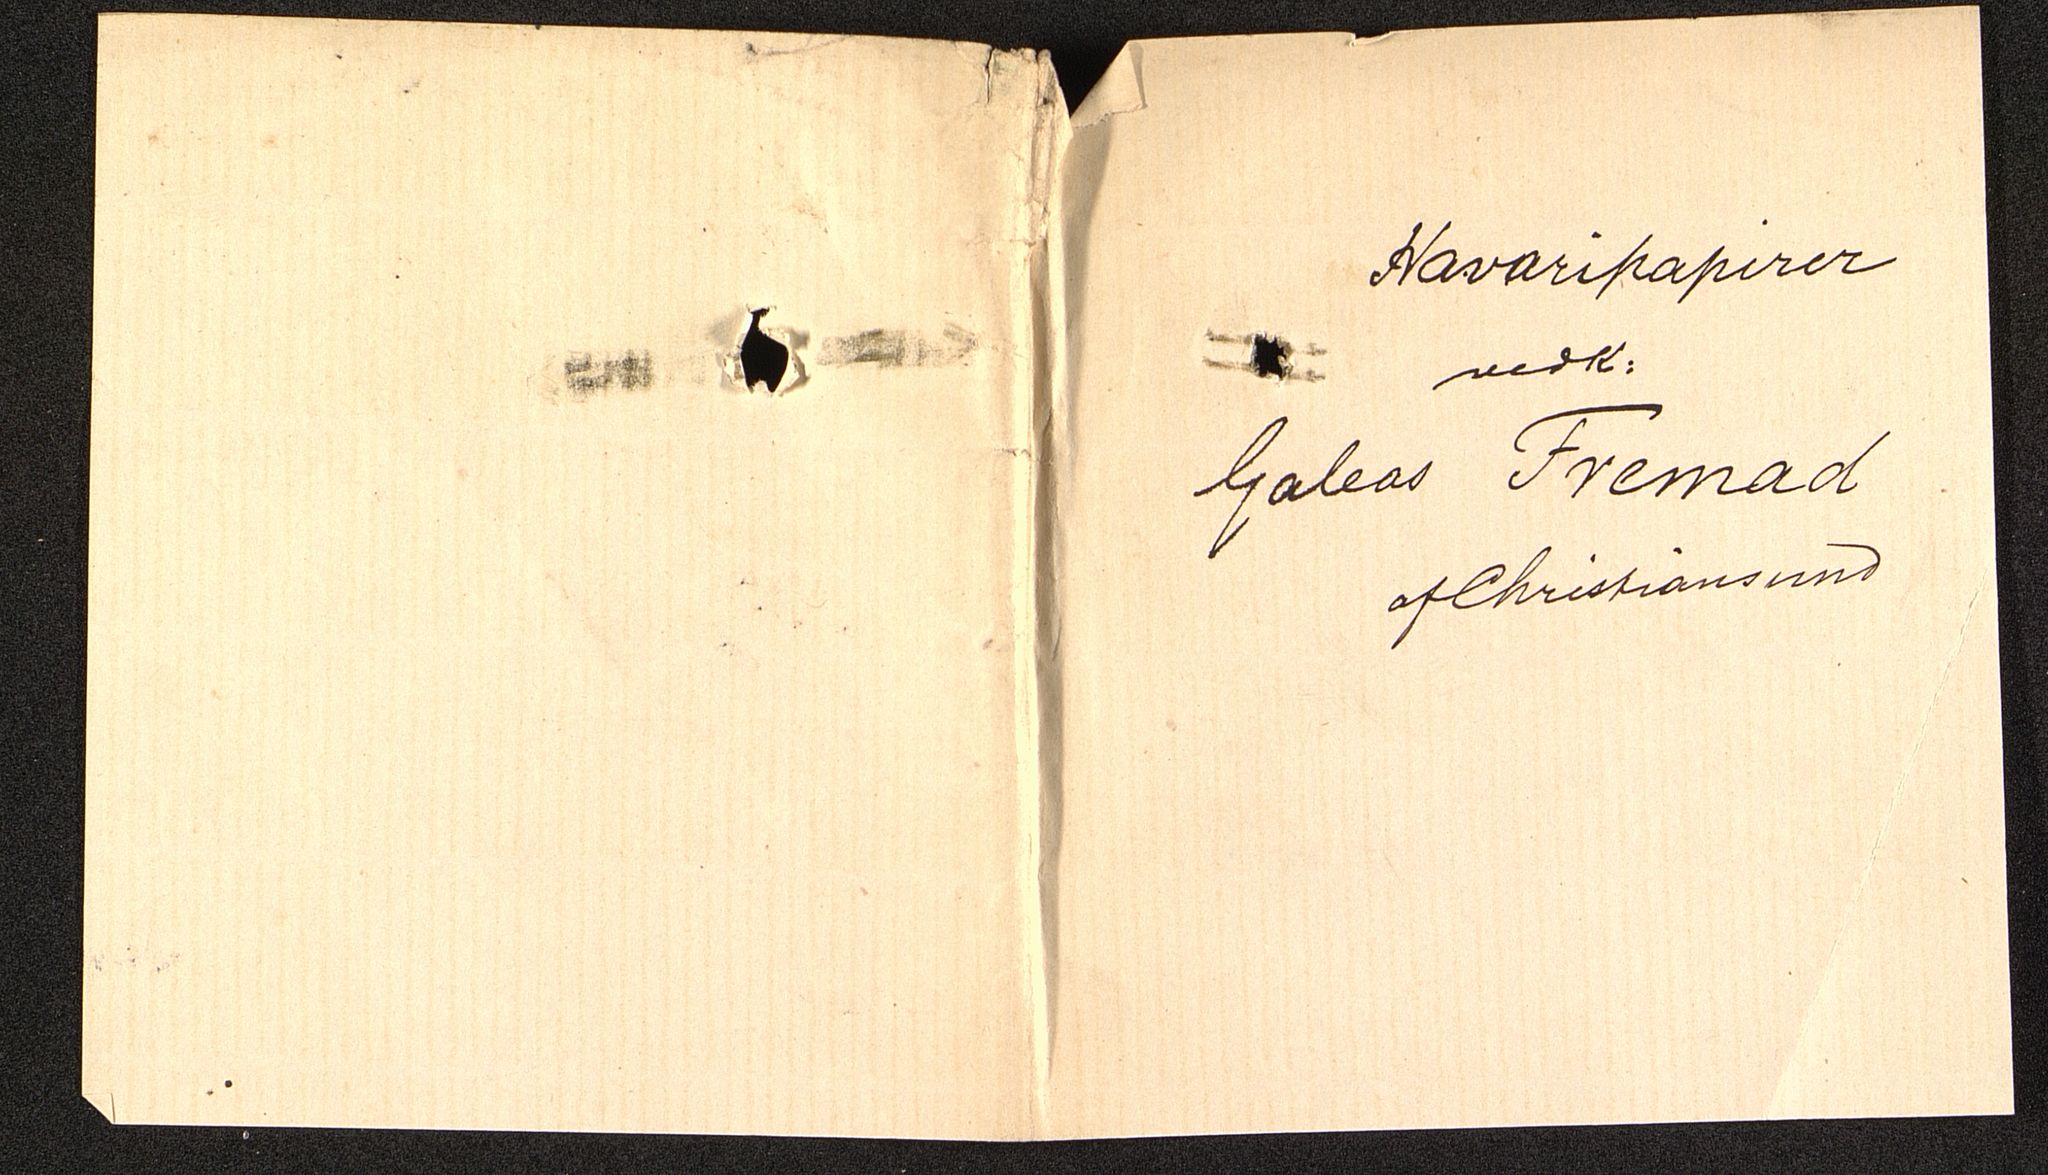 Havaripapirer
vedk:
Galeas Fremad
af Christiansund